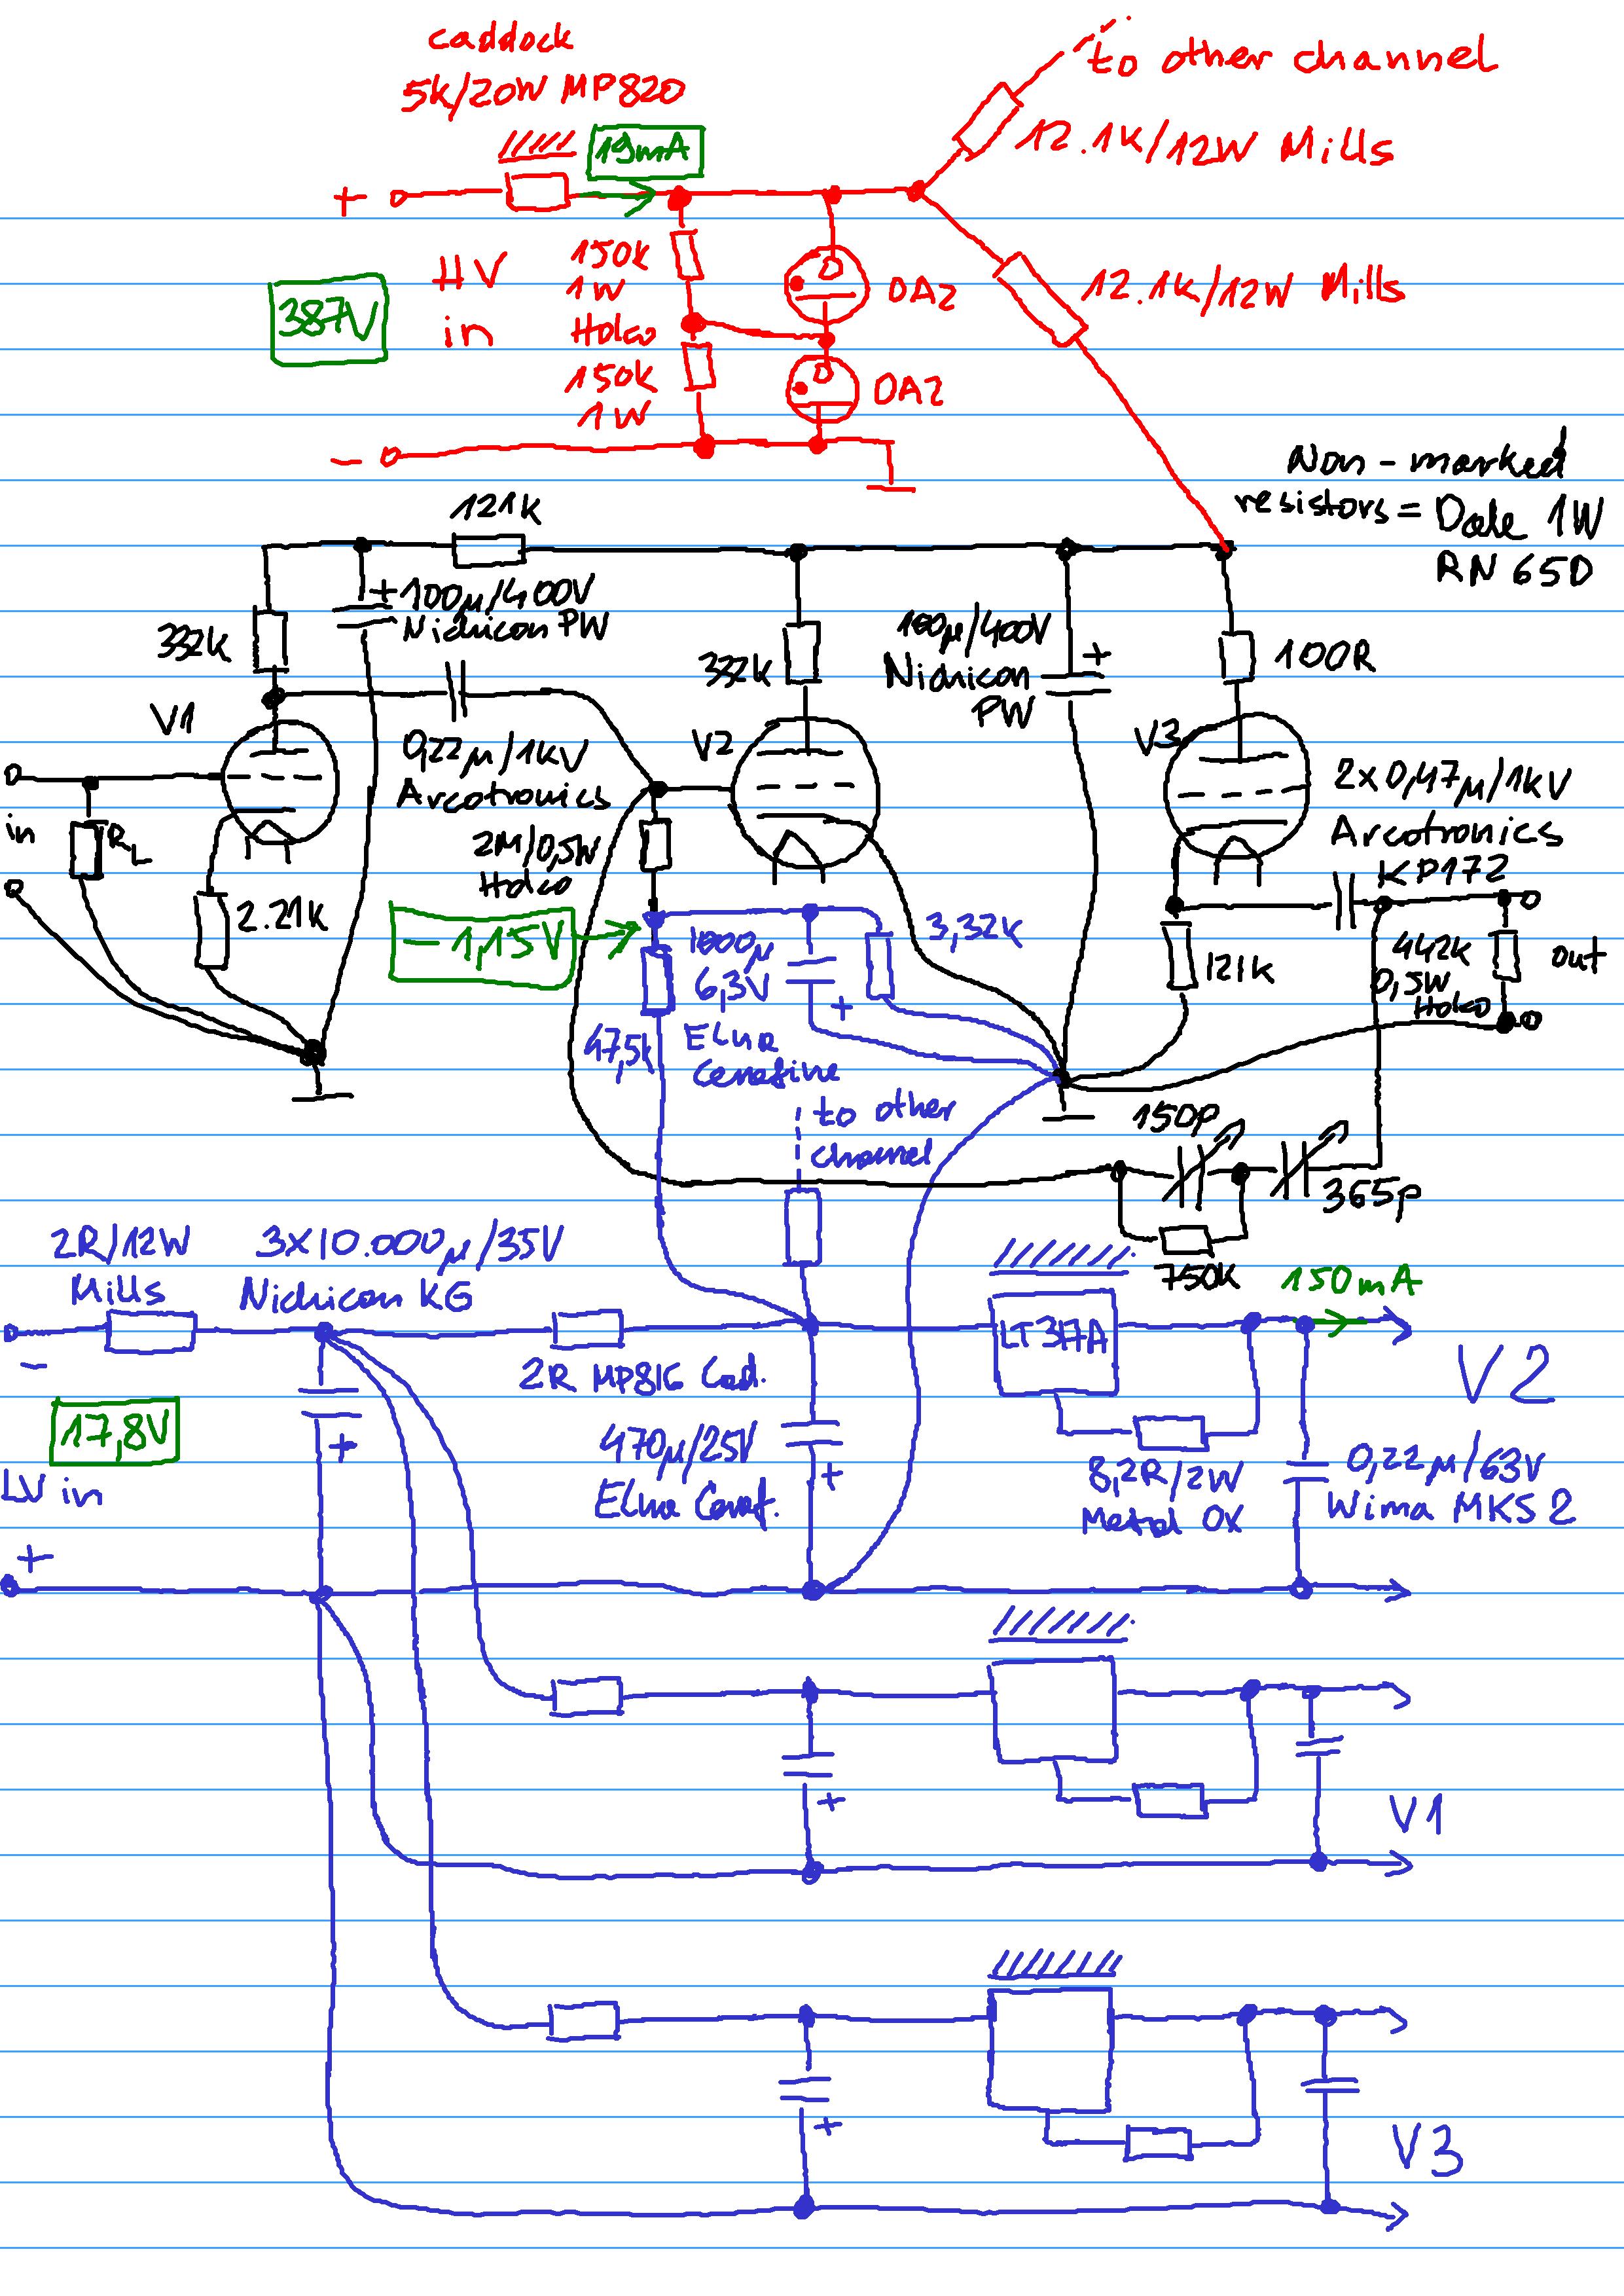 caddock
5k/20W MP820
to other channel
19mA
12.1k/12W Mills
+
150k
1W
Holco
HV
in
387V
OA2
12.1k/12W Mills
150k
1W
OA2
-
Non-marked
resistors = Dale 1W
RN65D
121k
+
100µ/400V
Nichicon PW
332k
332k
100µ/400V
Nichicon
PW
+
100R
V1
0,22µ/1kV
Arcotronics
V2
V3
2x0,47µ/1kV
Arcotronics
KP172
in
RL
2M/0,5W
Holco
2.21k
-1,15V
1000µ
6,3V
+
Elna
Cerafine
3,32k
121k
442k
0,5W
Holco
out
47,5k
to other
channel
150p
365p
750k
2R/12W
Mills
3x10.000µ/35V
Nichicon KG
150mA
-
LT317A
2R MP816 Cad.
V2
17,8V
+
470µ/25V
Elna Ceraf.
+
8,2R/2W
Metal Ox
0,22µ/63V
Wima MKS2
LV in
+
+
V1
+
V3